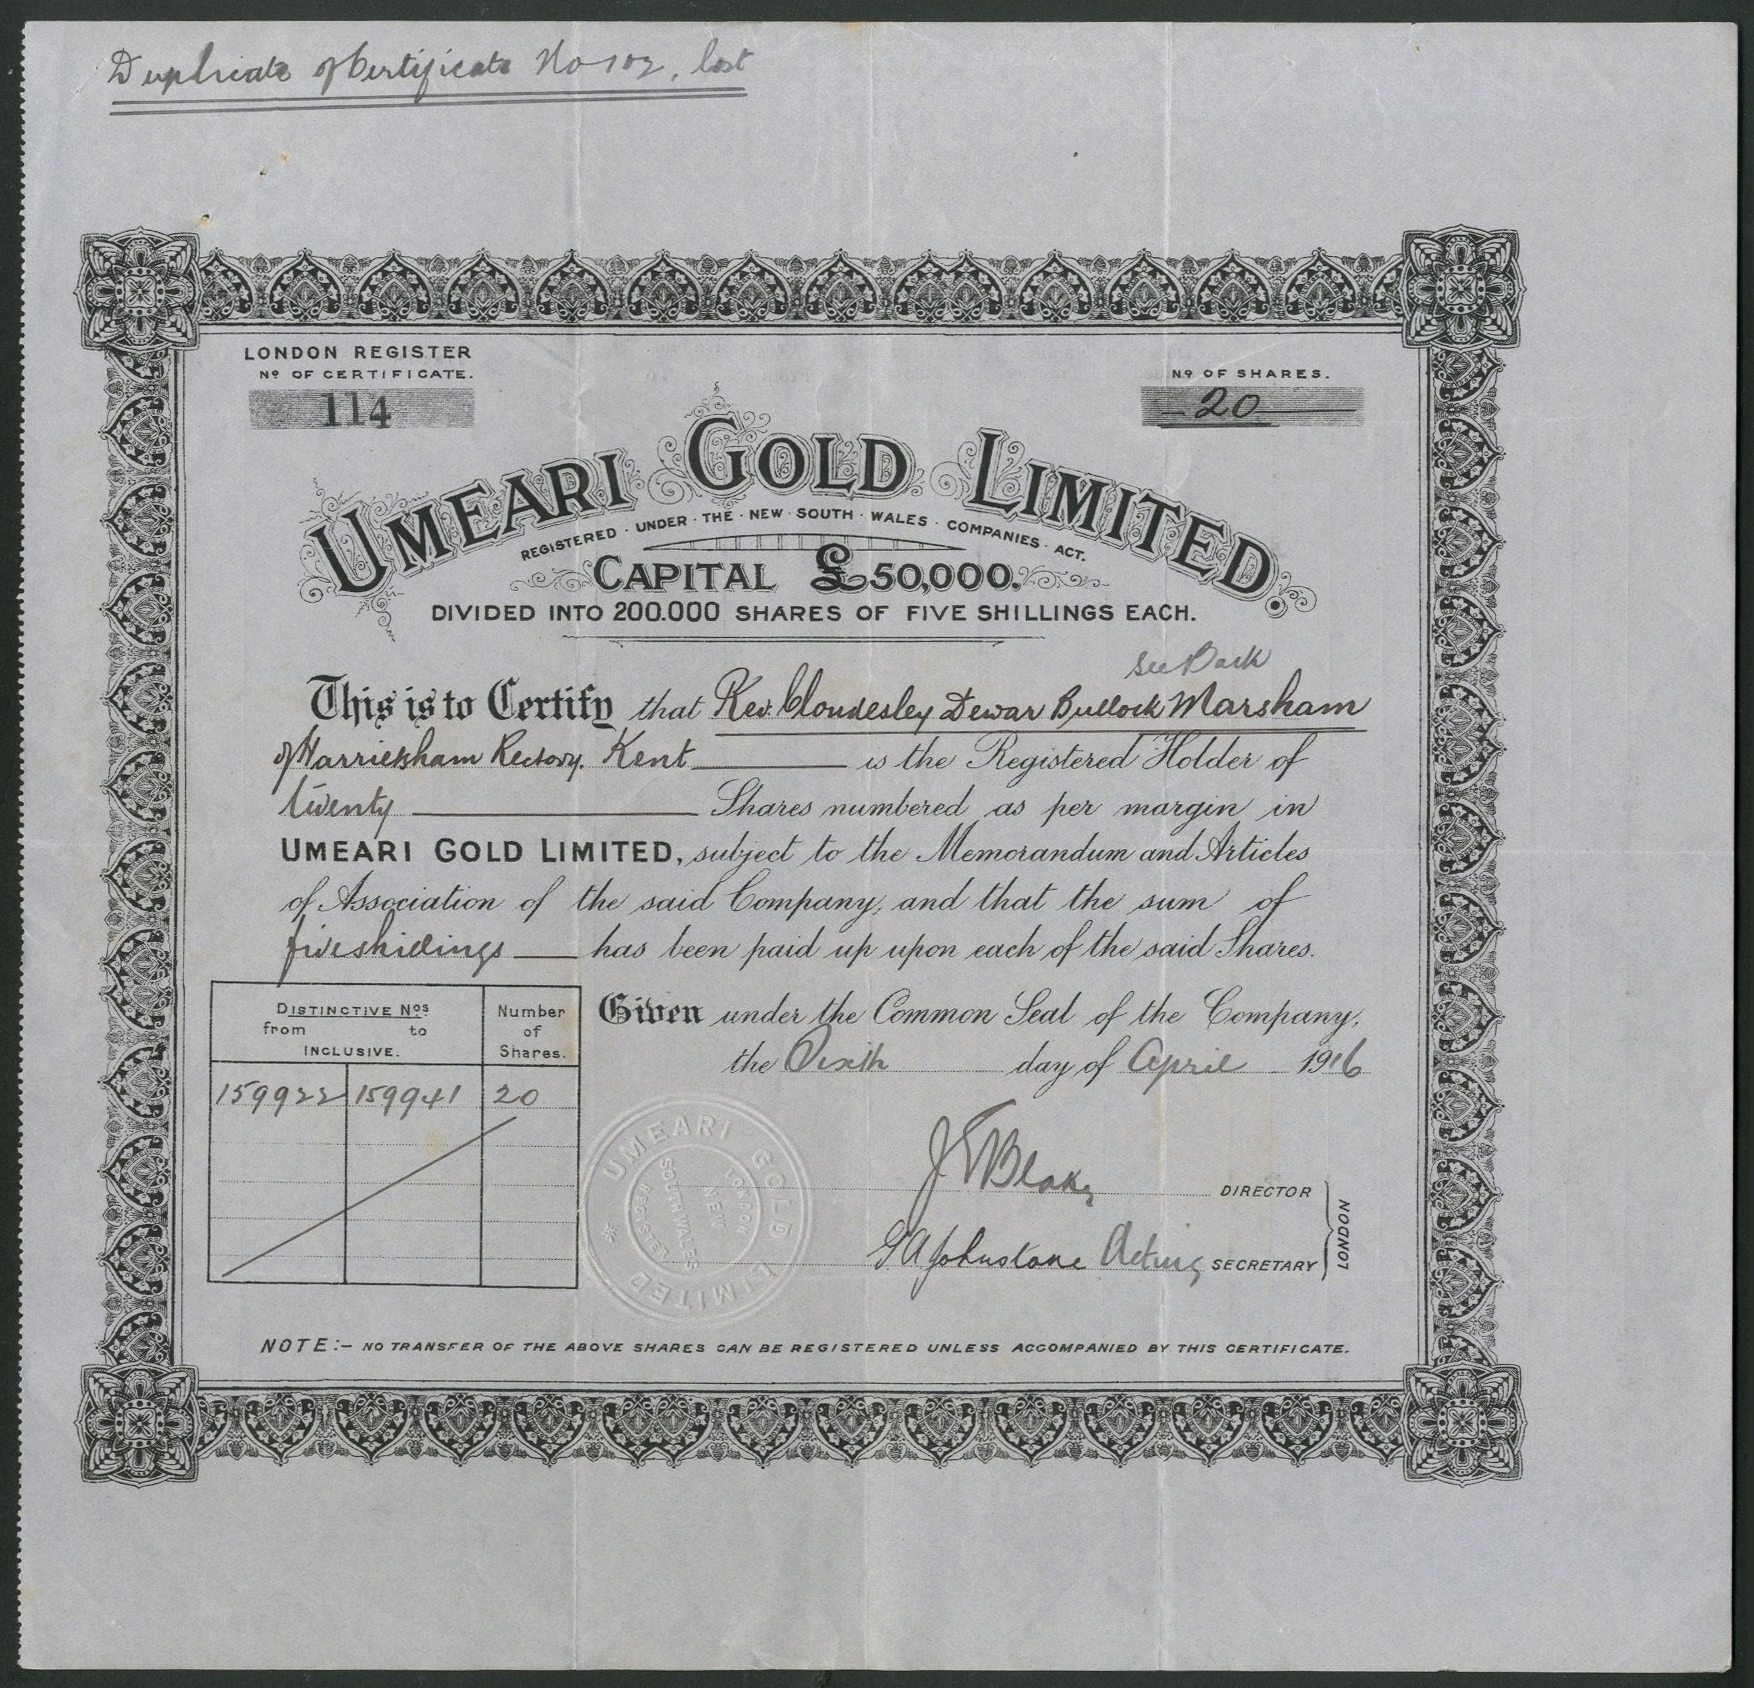 Duplicate of Certificate No 102, lost
LONDON REGISTER
No OF CERTIFICATE.
114
No OF SHARES.
20
UMEARI GOLD LIMITED.
REGISTERED · UNDER · THE · NEW · SOUTH · WALES · COMPANIES · ACT.
CAPITAL £50,000.
DIVIDED INTO 200.000 SHARES OF FIVE SHILLINGS EACH.
see Back
This is to Certify that Rev. Cloudesley Dewar Bullock Marsham
of Harrietsham Rectory. Kent is the Registered Holder of
twenty Shares numbered as per margin in
UMEARI GOLD LIMITED, subject to the Memorandum and Articles
of Association of the said Company, and that the sum of
five shillings has been paid up upon each of the said Shares.
DISTINCTIVE Nos
from to
INCLUSIVE.
Number
of
Shares.
159922 159941 20
Given under the Common Seal of the Company,
the Sixth day of April 1916
UMEARI GOLD LIMITED
LONDON
NEW
SOUTH WALES
REGISTER
J E Blake
DIRECTOR
G A Johnstone Acting SECRETARY
LONDON
NOTE:- NO TRANSFER OF THE ABOVE SHARES CAN BE REGISTERED UNLESS ACCOMPANIED BY THIS CERTIFICATE.